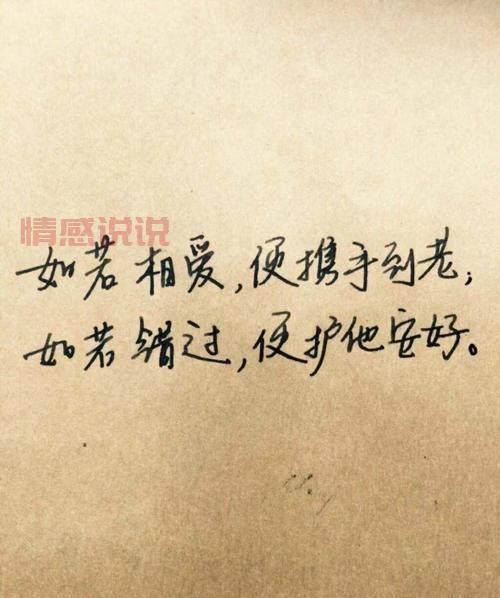 情感说说
如若相爱,便携手到老;
如若错过,便护他安好。